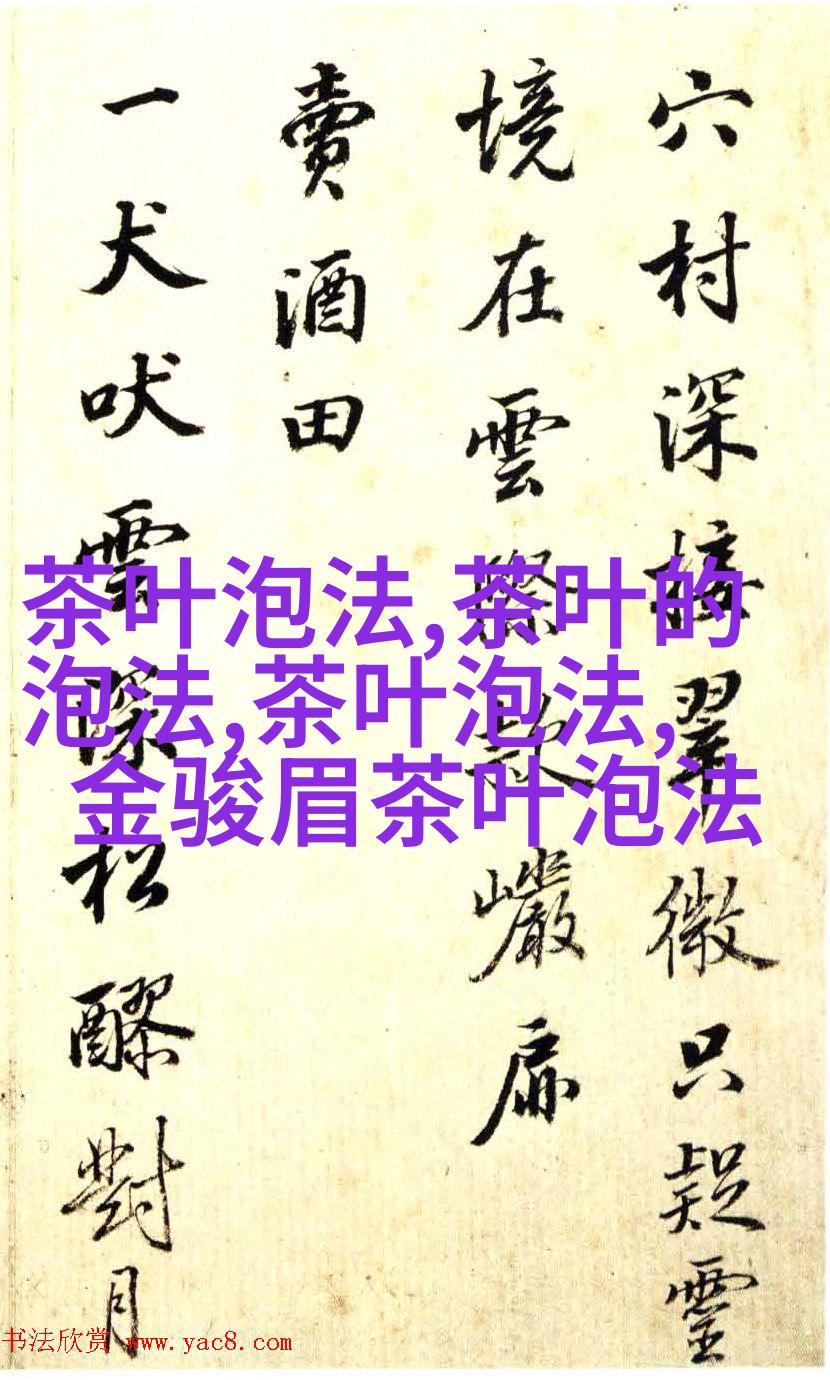 穴村深接翠微只疑靈
境在雲際款巖扉
賣酒田
一犬吠雲深松醪對月
茶叶泡法,茶叶的
泡法,茶叶泡法,
金骏眉茶叶泡法
书法欣赏 www.yac8.com